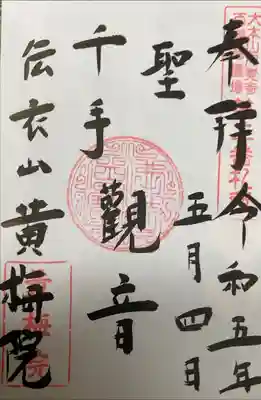 奉拝令和五年
五月四日
聖
千手
觀音
伝衣山黄梅院